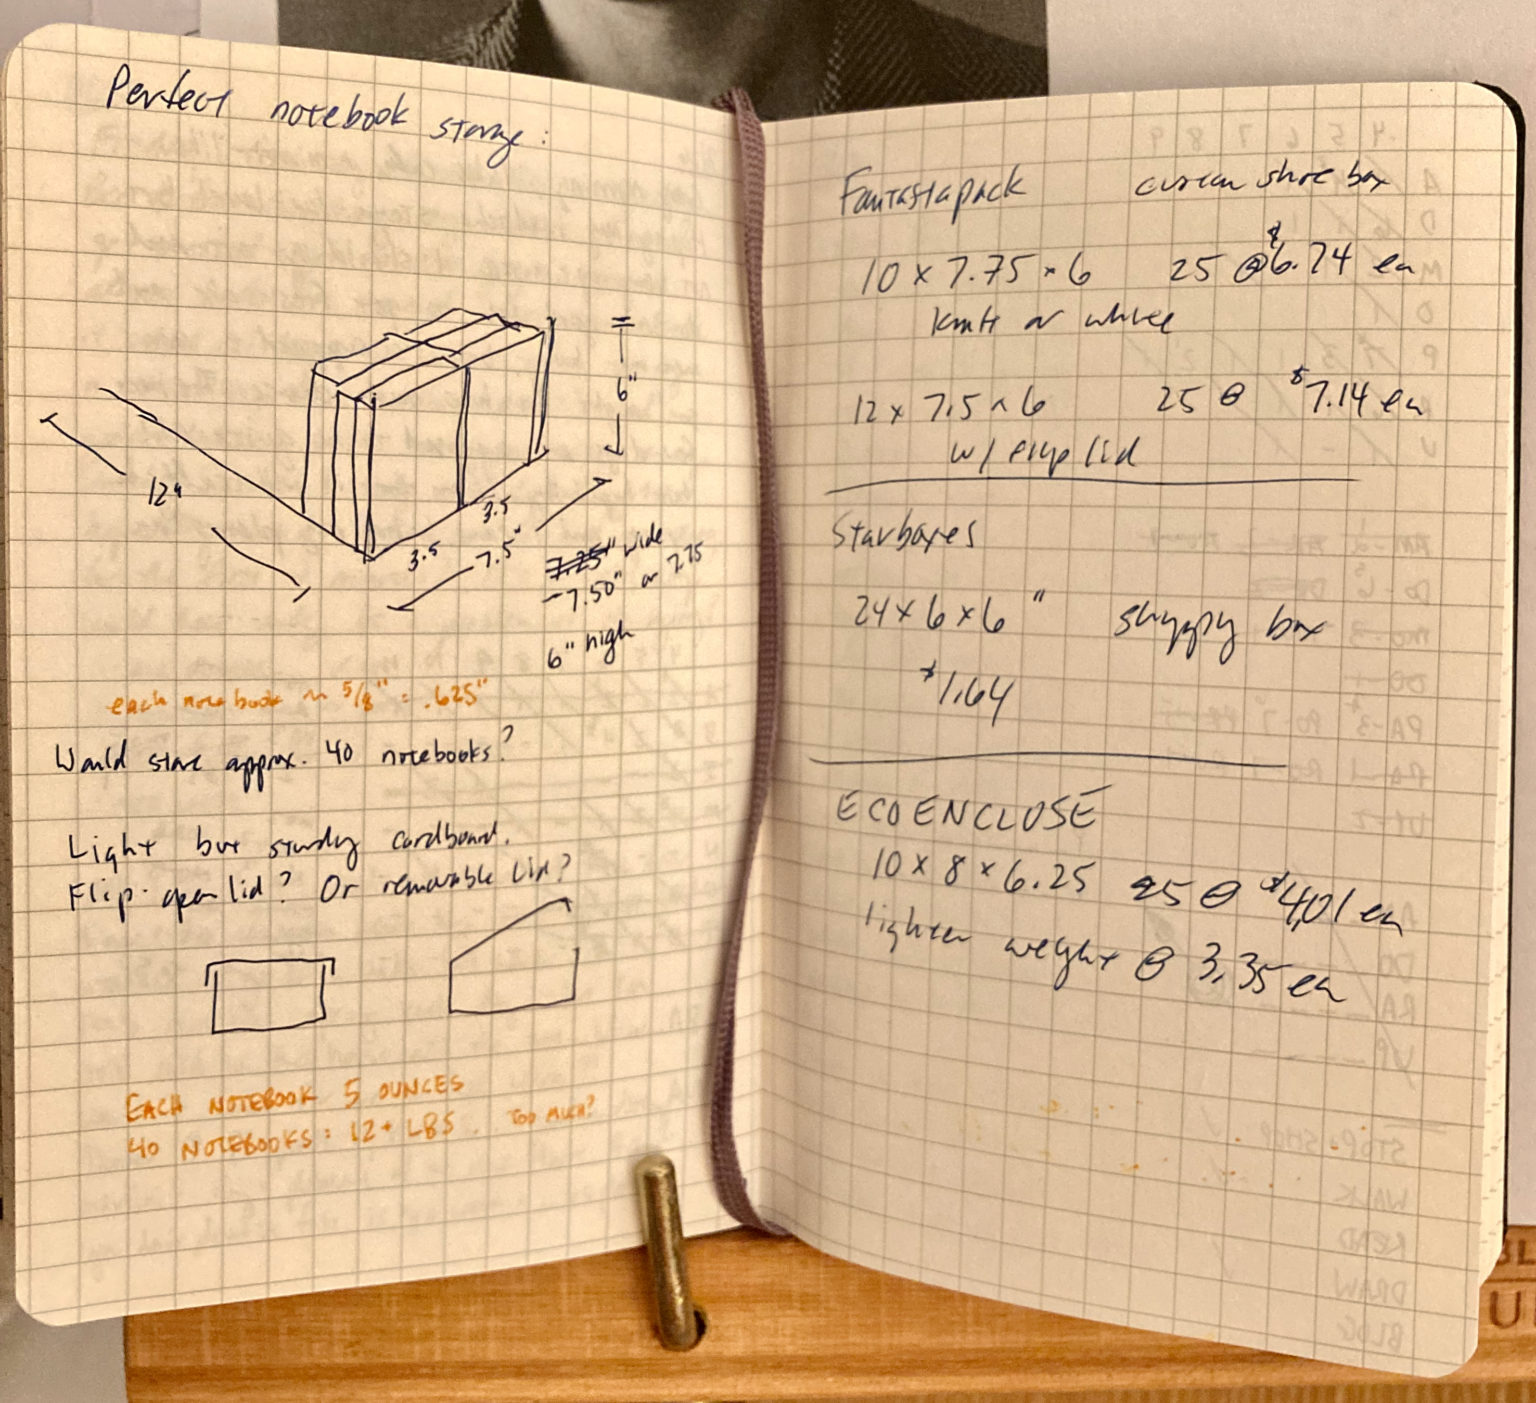 Perfect notebook storage:
6"
12"
3.5
3.5
7.5"
7.25" wide
~7.50" or 7.75
6" high
each notebook ~ 5/8" = .625"
Would store approx. 40 notebooks?
Light but sturdy cardboard.
Flip-open lid? Or removable lid?
EACH NOTEBOOK 5 OUNCES
40 NOTEBOOKS = 12+ LBS. TOO MUCH?
Fantastapack custom shoe box
10 x 7.75 x 6 25 @ $6.74 ea
kraft or white
12 x 7.5 x 6 25 @ $7.14 ea
w/ flip lid
Starboxes
24 x 6 x 6" shipping box
$1.64
ECOENCLOSE
10 x 8 x 6.25 25 @ $4.01 ea
lighter weight @ 3.35 ea
STOP + SHOP
WALK
READ
DRAW
BLOG